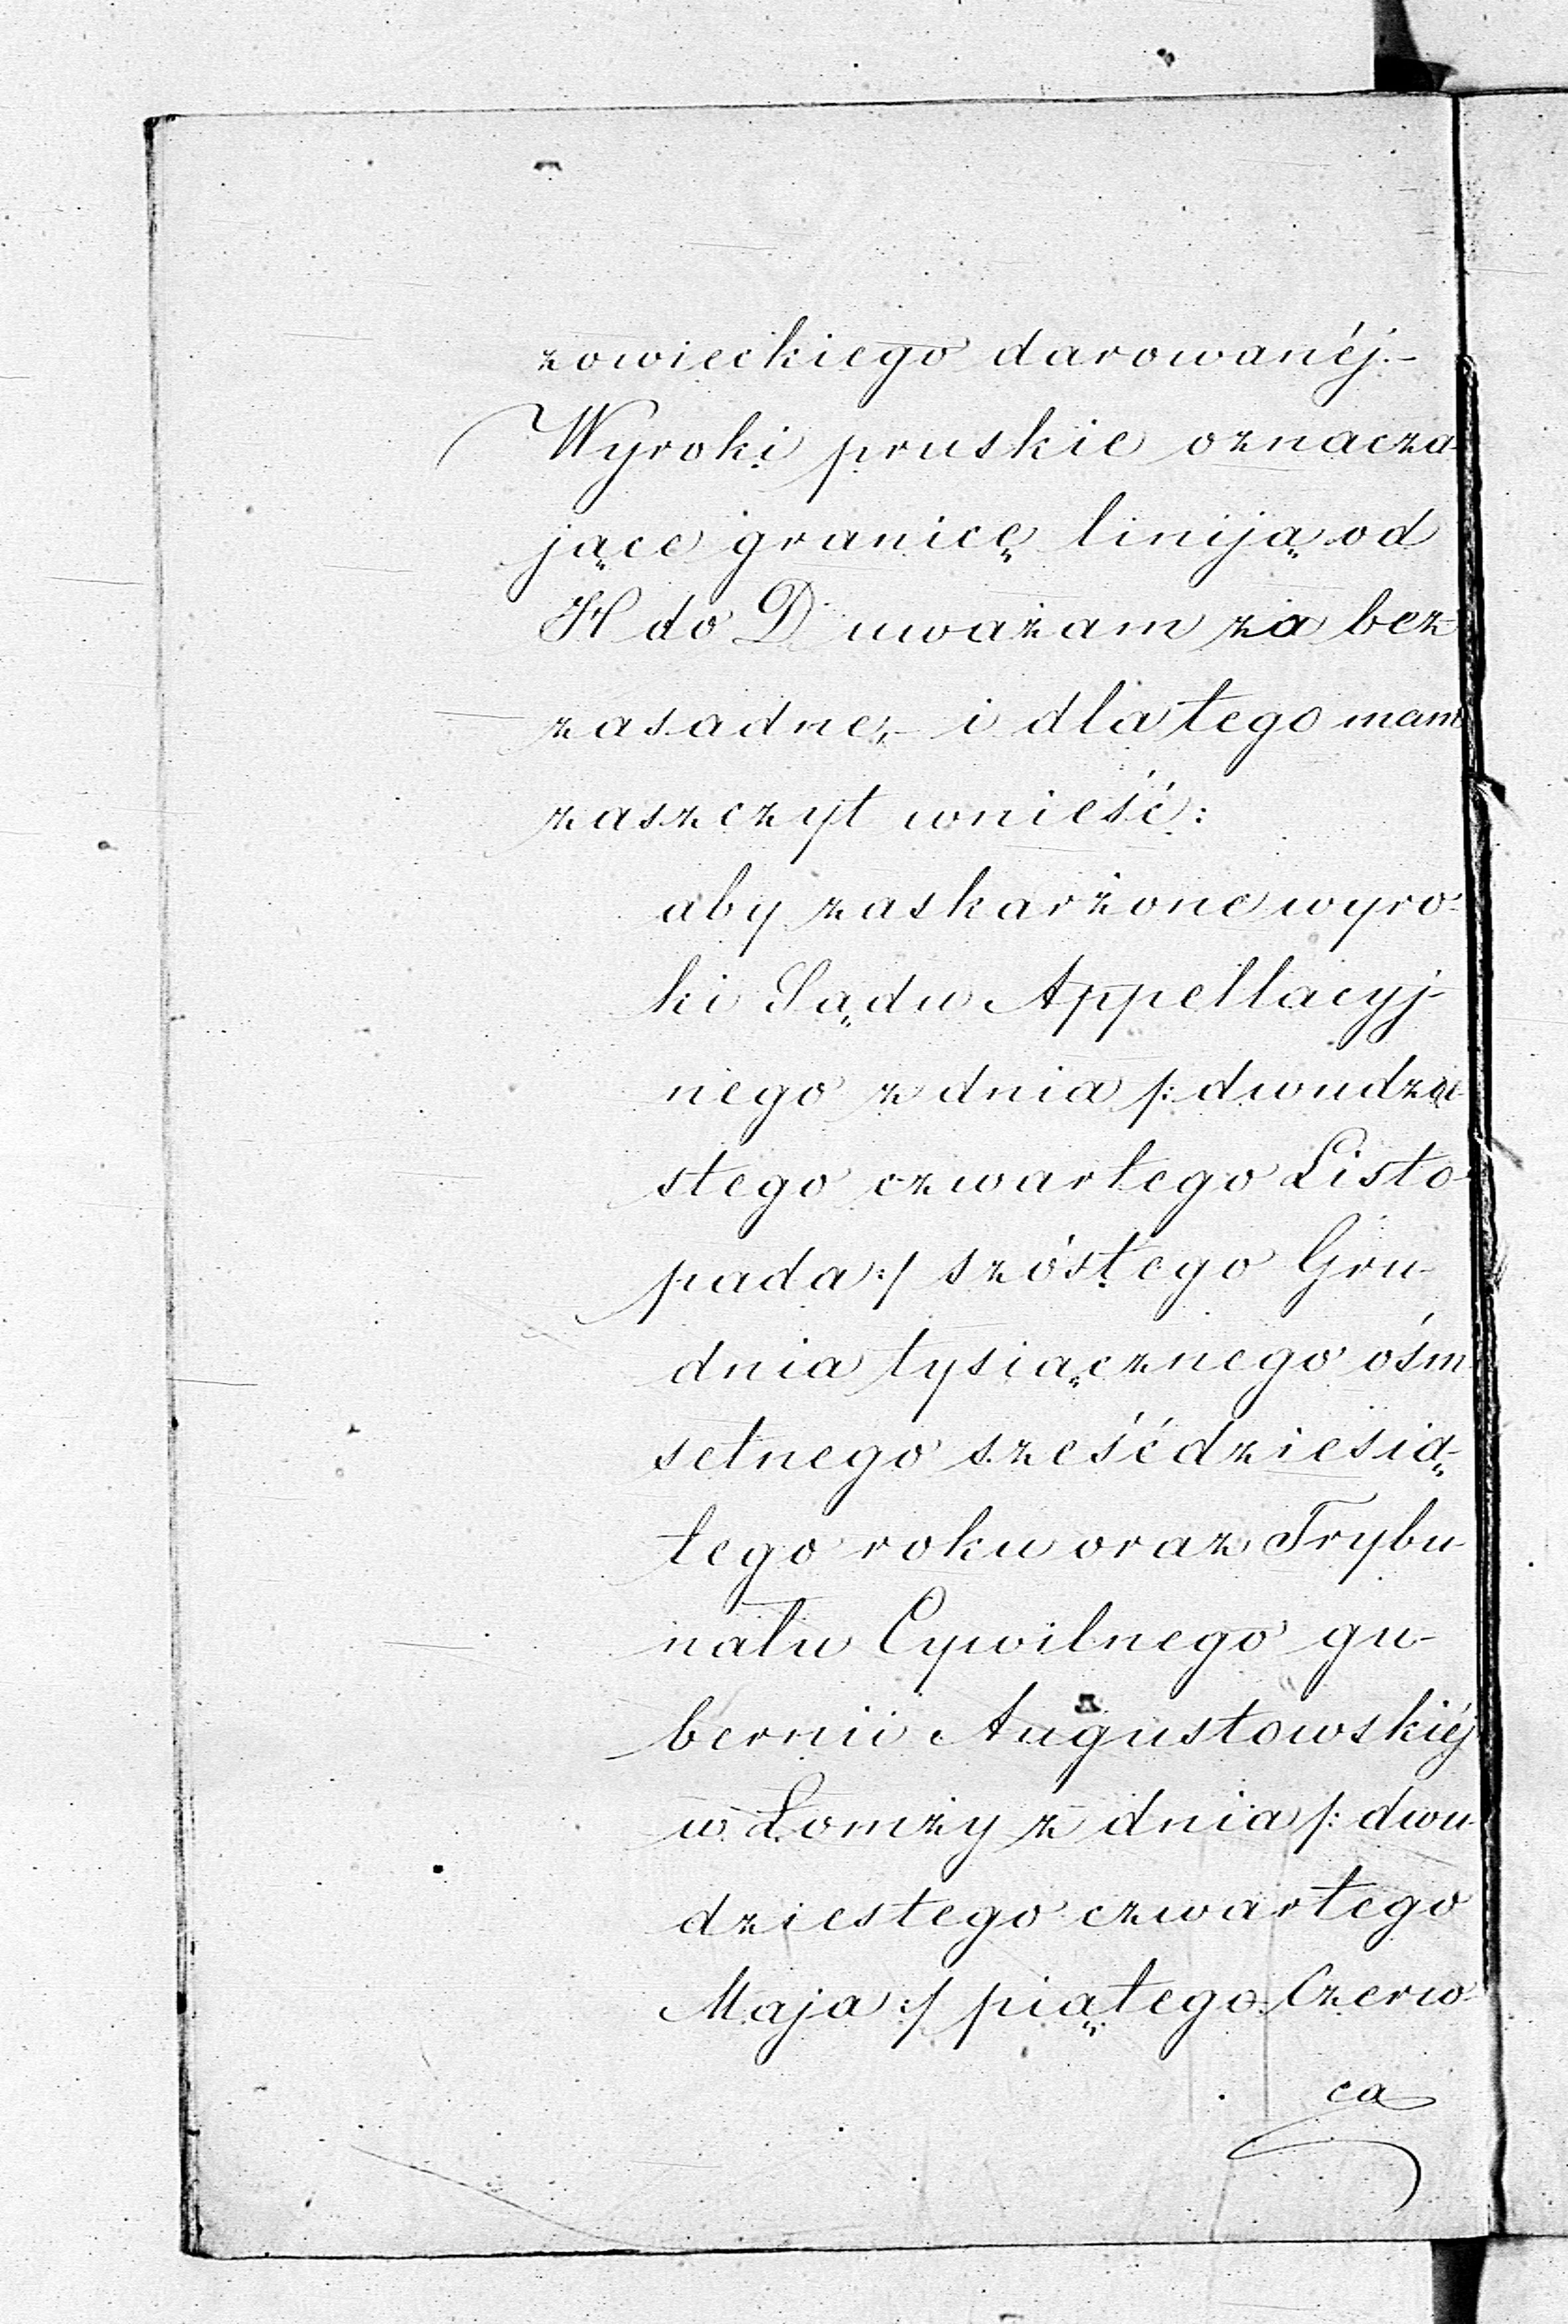 zowieckiego darowanéj.-
Wyroki pruskie oznacza-
jące granicę liniją od
H do D uważam za bez-
zasadne, - i dla tego mam
zaszczyt wnieść:
aby zaskarżone wyro-
ki Sądu Appellacyj-
nego z dnia /: dwudzie-
stego czwartego Listo-
pada :/ szóstego Gru-
dnia tysiącznego ośm-
setnego sześćdziesią-
tego roku oraz Trybu-
nału Cywilnego gu-
bernii Augustowskiéj
w Łomży z dnia /: dwu-
dziestego czwartego
Maja :/ piątego Czerw-
ca